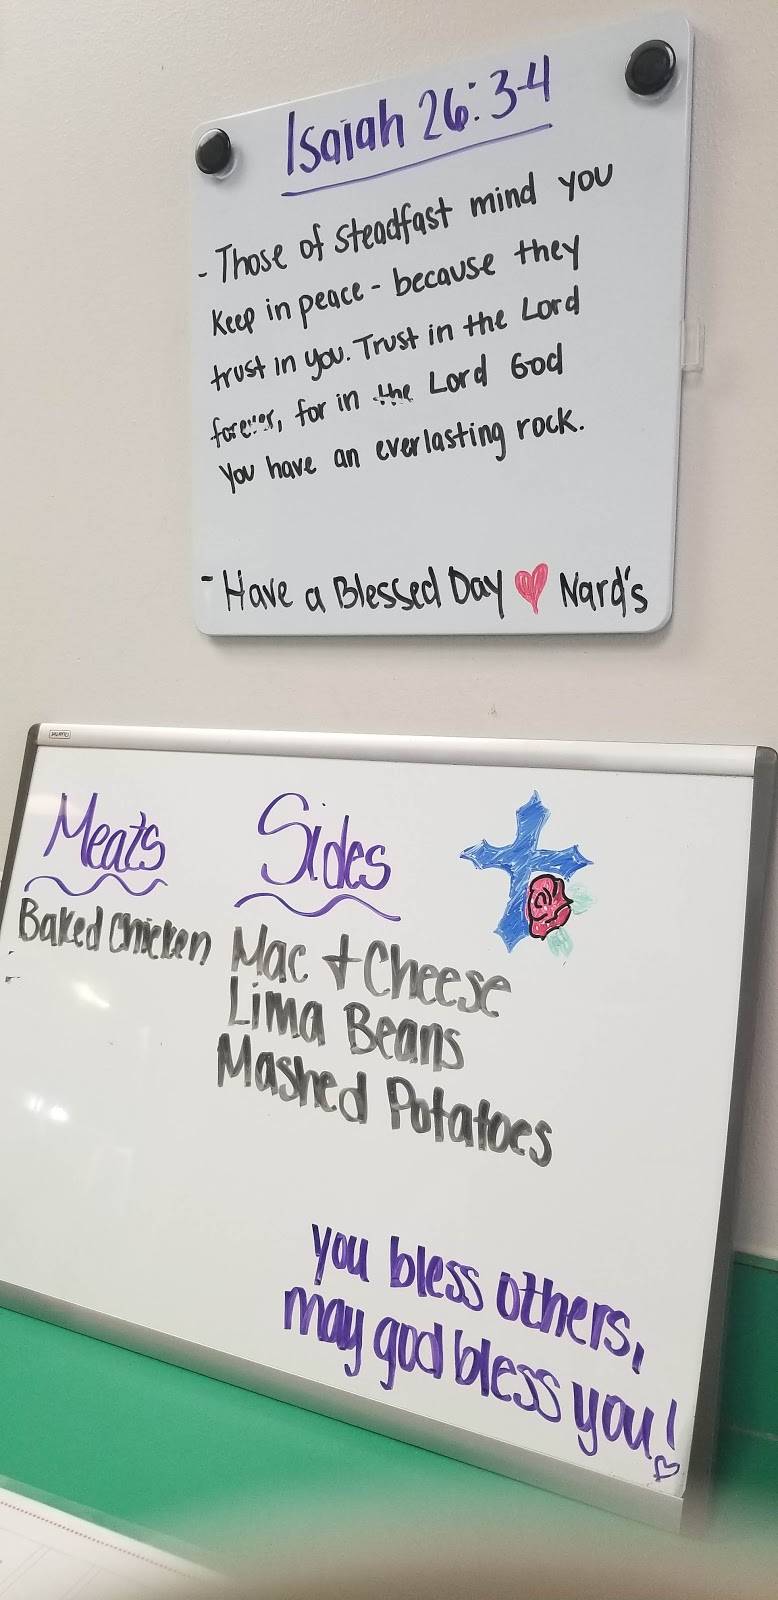 Isaiah 26:3-4
- Those of steadfast mind you
keep in peace - because they
trust in you. Trust in the Lord
forever, for in the Lord God
you have an everlasting rock.
- Have a Blessed Day Nard's
Meats
Baked Chicken
Sides
Mac + Cheese
Lima Beans
Mashed Potatoes
you bless others,
may god bless you!